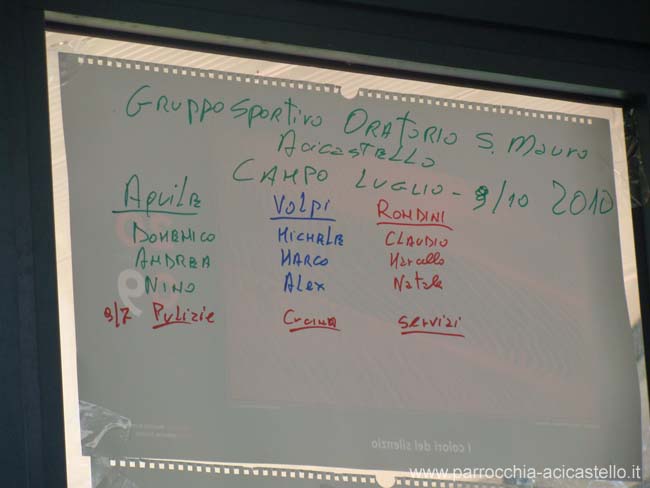 Gruppo Sportivo Oratorio S. Mauro
Acicastello
Campo Luglio - 9/10 2010
Aquile Volpi Rondini
Domenico Michele Claudio
Andrea Marco Marcello
Nino Alex Natale
9/7 Pulizie Cucina Servizi
I colori del silenzio
www.parrocchia-acicastello.it